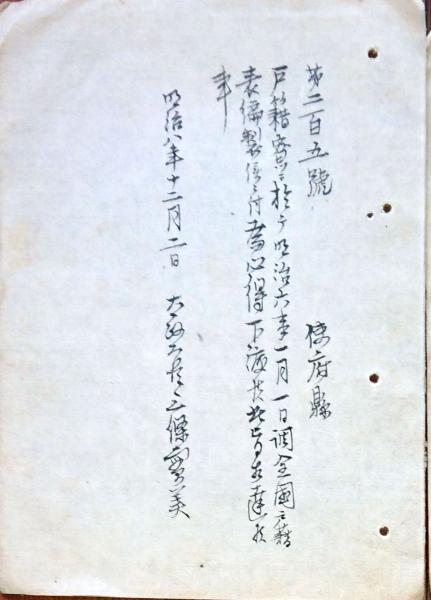 第二百五號
使府縣
戸籍寮ニ於テ明治六年一月一日調全國戸籍
表編製候ニ付為心得下渡候此旨相達候
事
明治八年十二月二日 太政大臣三條實美